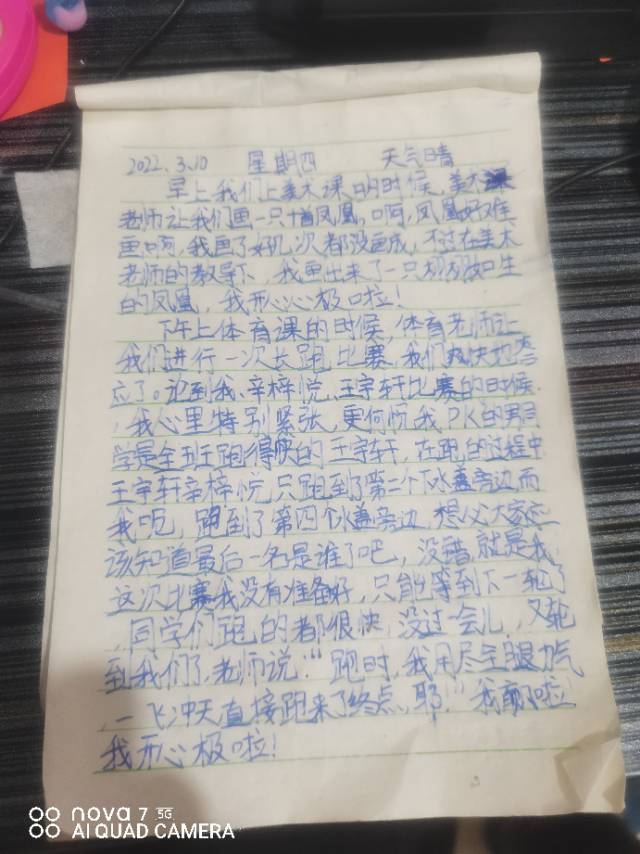 2022.3.10 星期四 天气晴
早上我们上美术课的时候,美术
老师让我们画一只凤凰,啊,凤凰好难
画啊,我画了好几次都没画成,不过在美术
老师的教导下,我画出来了一只栩栩如生
的凤凰,我开心极啦!
下午上体育课的时候,体育老师让
我们进行一次长跑比赛,我们爽快地答
应了。轮到我、辛梓悦、王宇轩比赛的时候
,我心里特别紧张,更何况我PK的男同
学是全班跑得快的王宇轩,在跑的过程中
王宇轩辛梓悦只跑到了第二个下水盖旁边而
我呢,跑到了第四个水盖旁边,想必大家应
该知道最后一名是谁了吧,没错就是我,
这次比赛我没有准备好,只能等到下一轮了
,同学们跑的都很快,没过一会儿,又轮
到我们了,老师说:“跑时,我用尽全腿力气
,一飞冲天直接跑来了终点、耶!”我赢啦
我开心极啦!
nova 7 5G
AI QUAD CAMERA